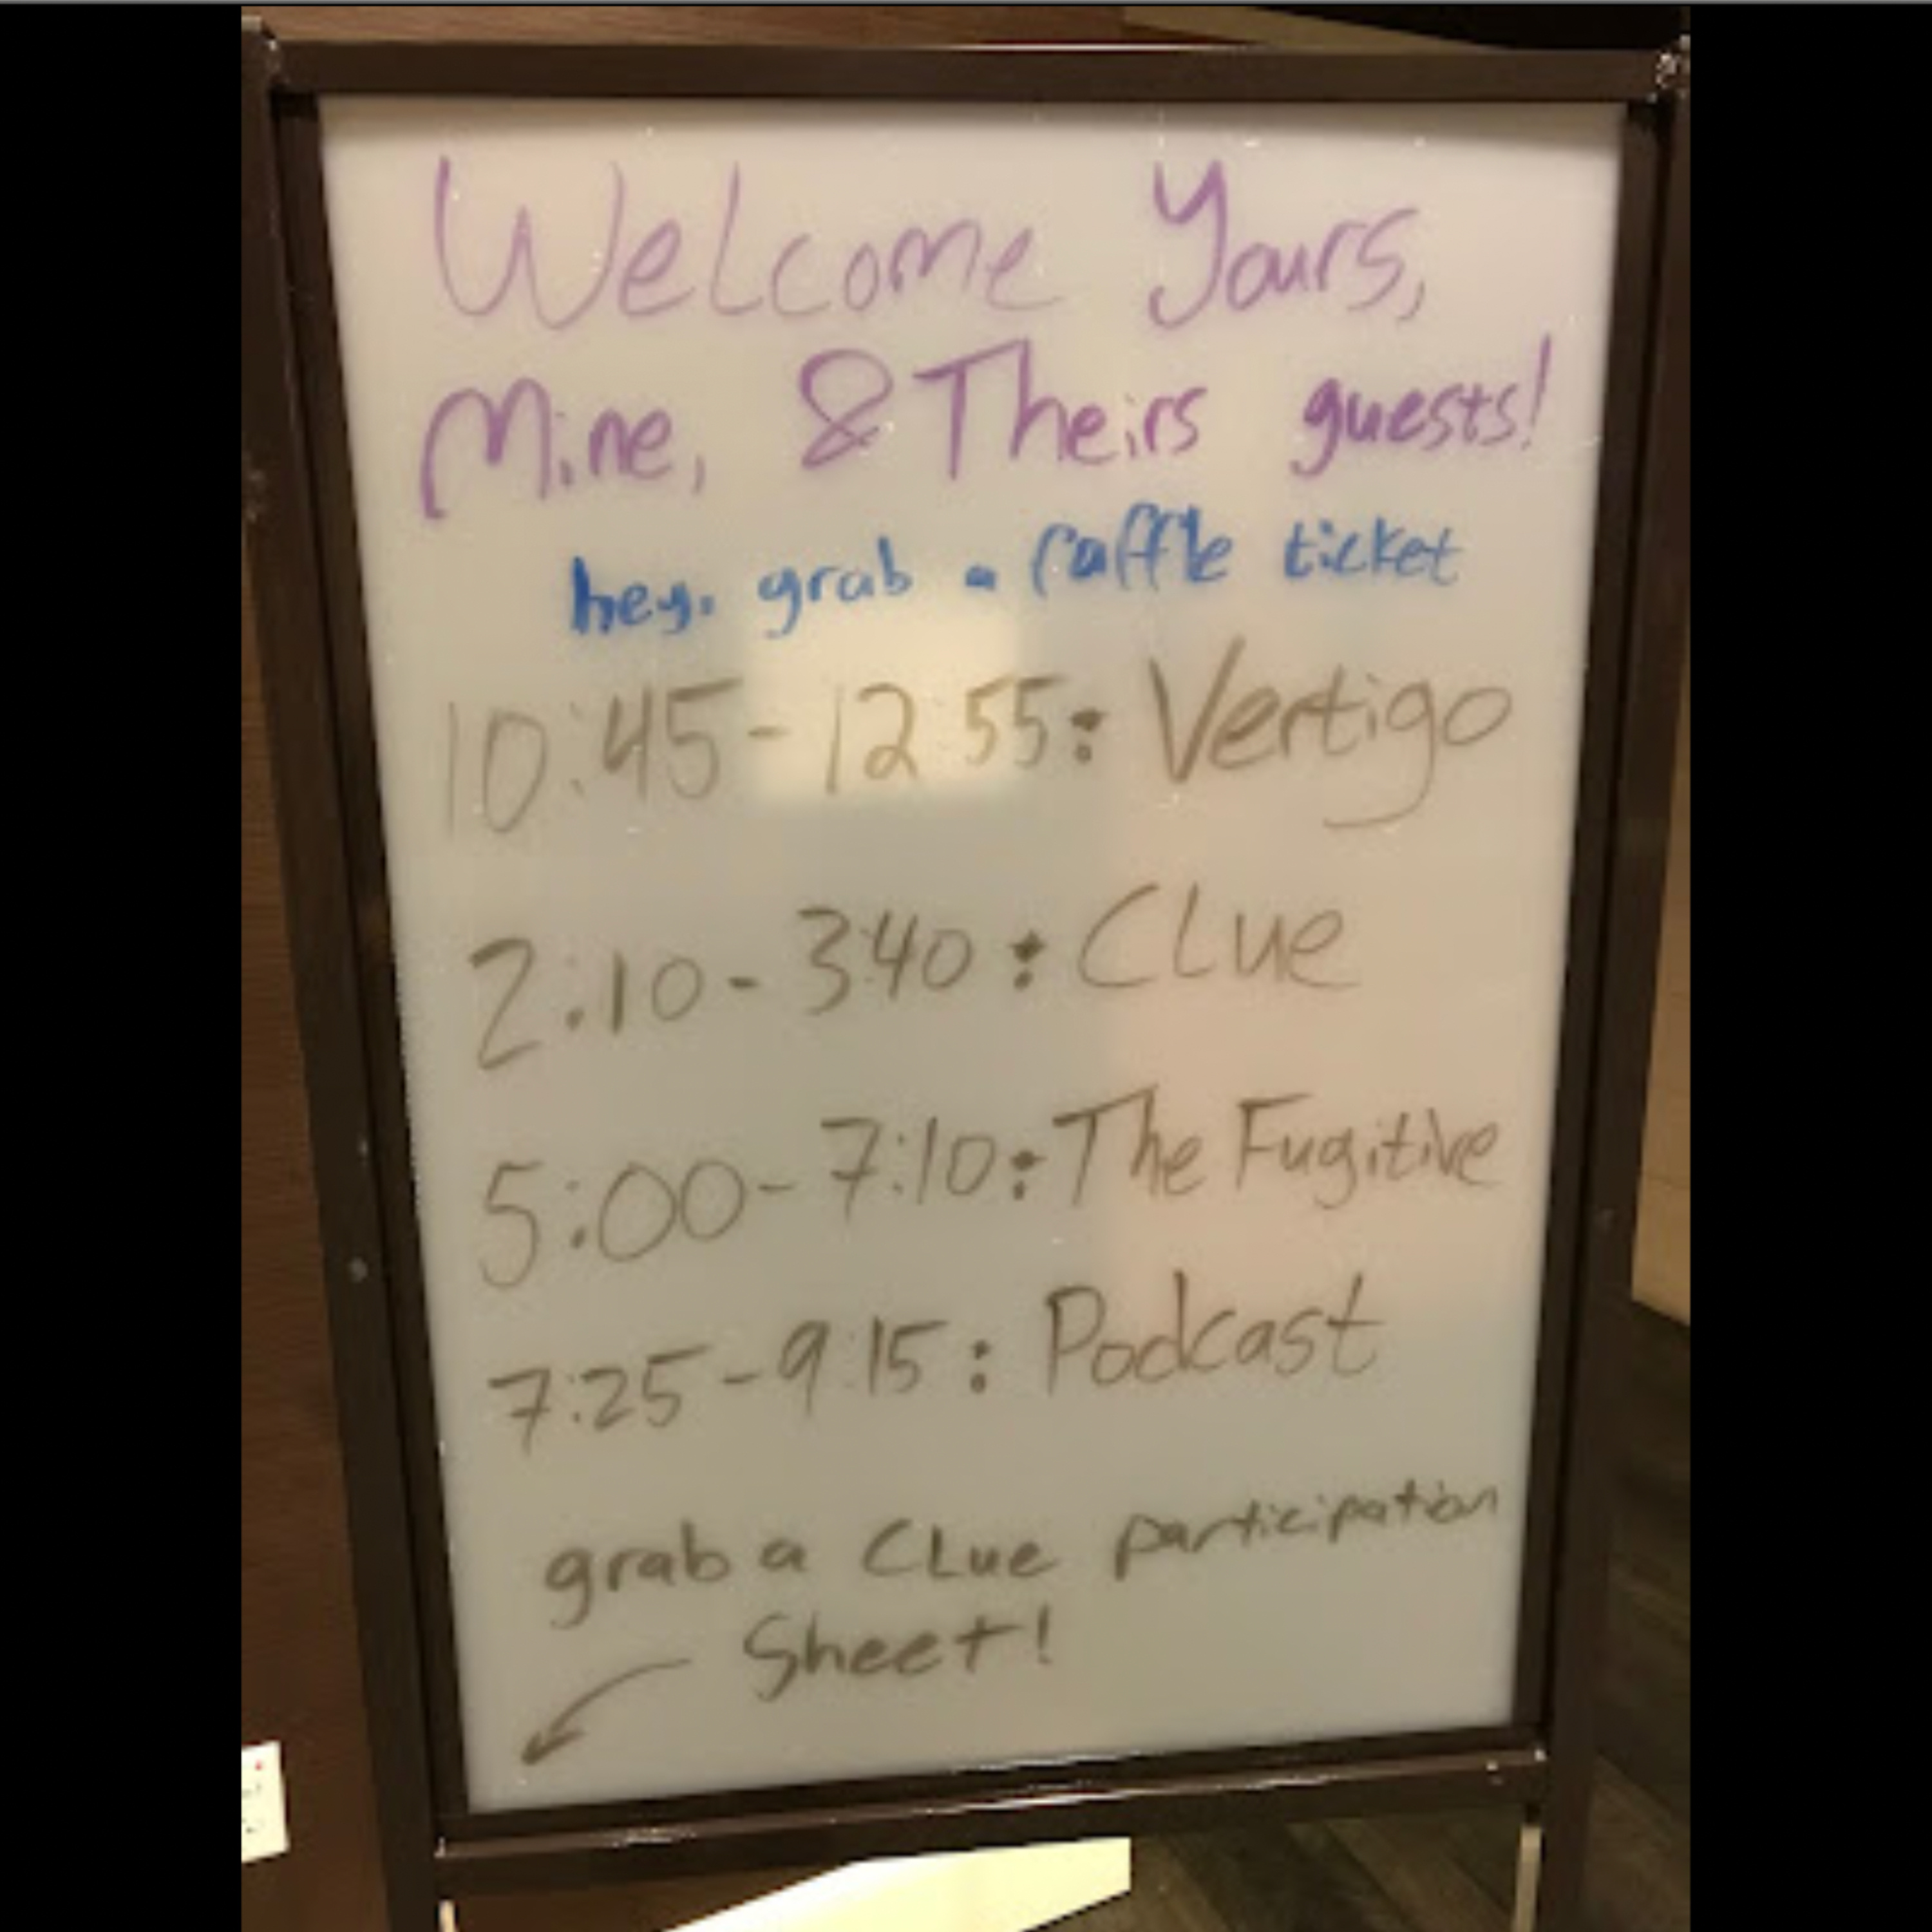 Welcome Yours,
Mine, & Theirs guests!
hey. grab a raffle ticket
10:45-12:55: Vertigo
2:10-3:40: Clue
5:00-7:10: The Fugitive
7:25-9:15: Podcast
grab a Clue participation
Sheet!